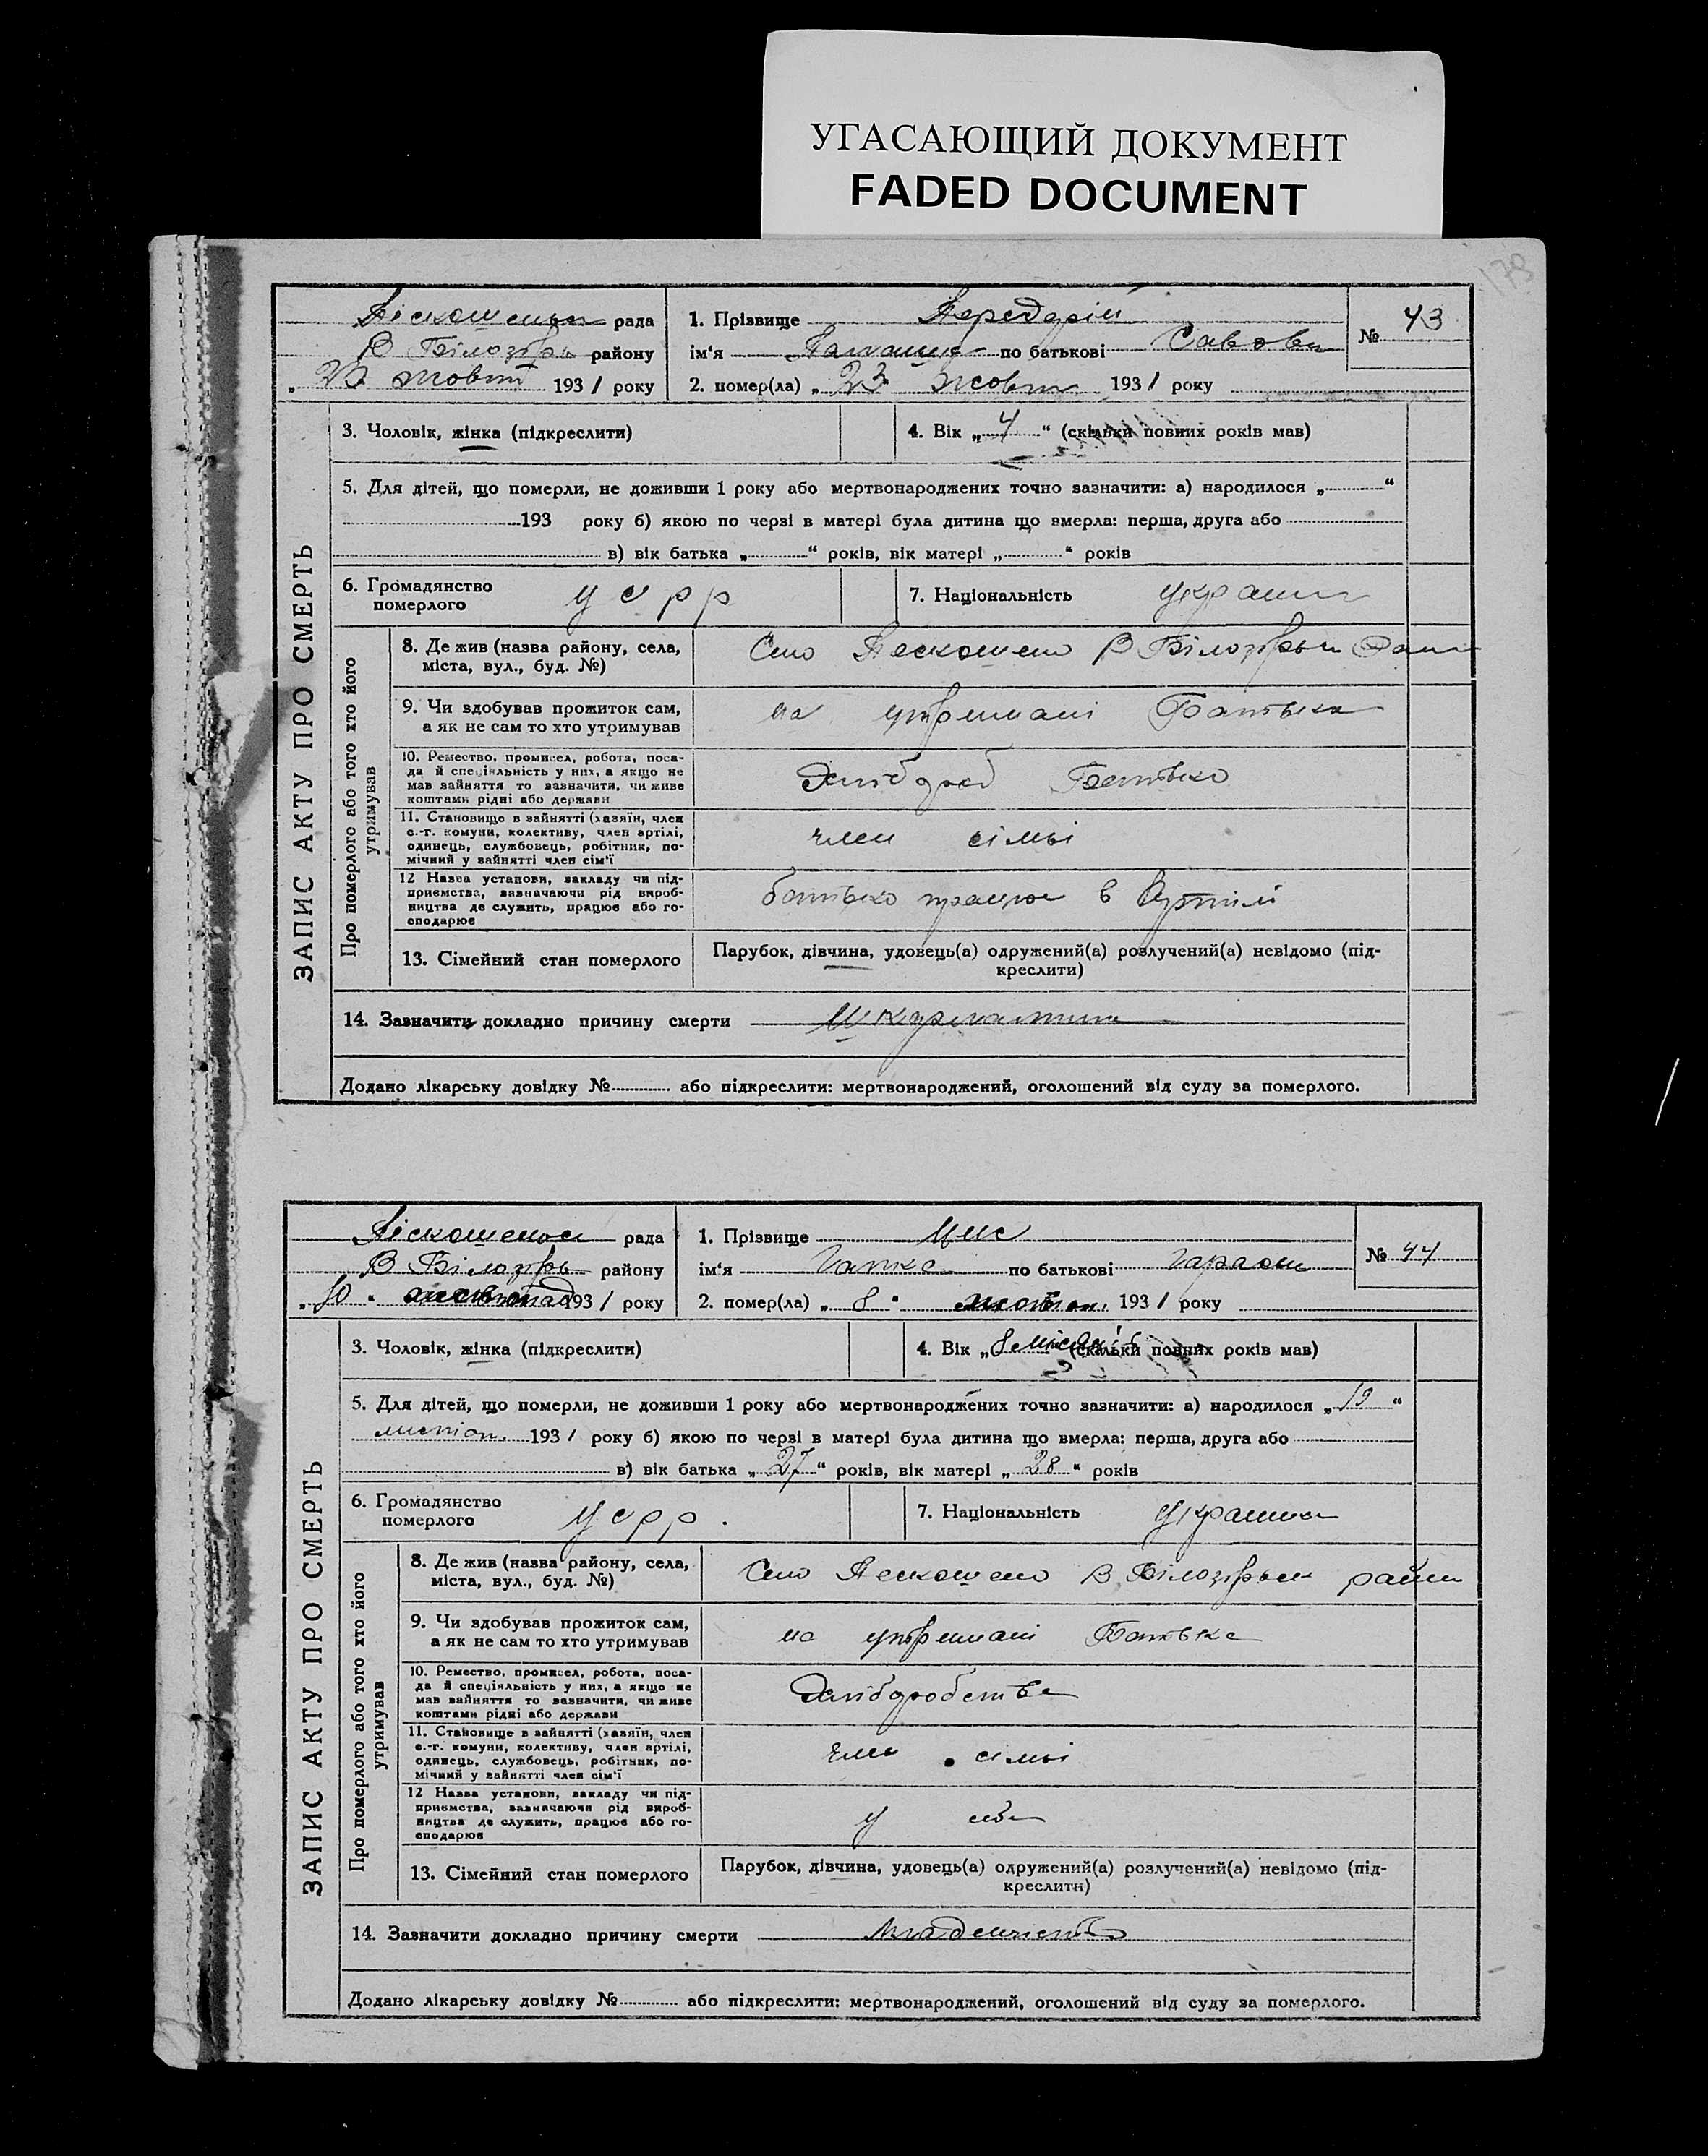 УГАСАЮЩИЙ ДОКУМЕНТ
FADED DOCUMENT
178
рада
1. Прізвище Передерій
№ 43
В Білозірь району
ім'я по батькові Савова
193 1 року
2. помер(ла) „ 23 193 1 року
ЗАПИС АКТУ ПРО СМЕРТЬ
3. Чоловік, жінка (підкреслити)
4. Вік „ 4 “ (скільки повних років мав)
5. Для дітей, що померли, не доживши 1 року або мертвонароджених точно зазначити: а) народилося „ “
193 року б) якою по черзі в матері була дитина що вмерла: перша, друга або
в) вік батька „ “ років, вік матері „ “ років
6. Громадянство
померлого
усрр
7. Національність
Про померлого або того хто його
утримував
8. Де жив (назва району, села,
міста, вул., буд. №)
Село В Білозірьк
9. Чи здобував прожиток сам,
а як не сам то хто утримував
на утримані Батька
10. Ремество, промисел, робота, поса-
да й спеціяльність у них, а якщо не
мав зайняття то зазначити, чи живе
коштами рідні або держави
Хлібороб Батько
11. Становище в зайнятті (хазяїн, член
с.-г. комуни, колективу, член артілі,
одинець, службовець, робітник, по-
мічний у зайнятті член сім'ї
член сімьі
12 Назва установи, закладу чи під-
приємства, зазначаючи рід вироб-
ництва де служить, працює або го-
сподарює
батько працює в Артілі
13. Сімейний стан померлого
Парубок, дівчина, удовець(а) одружений(а) розлучений(а) невідомо (під-
креслити)
14. Зазначити докладно причину смерти Шкарлатина
Додано лікарську довідку № або підкреслити: мертвонароджений, оголошений від суду за померлого.
рада
1. Прізвище
№ 44
В Білозірь району
ім'я Гапка по батькові
„ 10 “ листопад 193 1 року
2. помер(ла) „ 8 “ 193 1 року
ЗАПИС АКТУ ПРО СМЕРТЬ
3. Чоловік, жінка (підкреслити)
4. Вік „ (скільки повних років мав)
5. Для дітей, що померли, не доживши 1 року або мертвонароджених точно зазначити: а) народилося „ “
193 1 року б) якою по черзі в матері була дитина що вмерла: перша, друга або
в) вік батька „ 27 “ років, вік матері „ 28 “ років
6. Громадянство
померлого
усрр.
7. Національність
Українка
Про померлого або того хто його
утримував
8. Де жив (назва району, села,
міста, вул., буд. №)
Село В Білозірьк
9. Чи здобував прожиток сам,
а як не сам то хто утримував
на утримані Батька
10. Ремество, промисел, робота, поса-
да й спеціяльність у них, а якщо не
мав зайняття то зазначити, чи живе
коштами рідні або держави
Хліборобства
11. Становище в зайнятті (хазяїн, член
с.-г. комуни, колективу, член артілі,
одинець, службовець, робітник, по-
мічний у зайнятті член сім'ї
член сімьі
12 Назва установи, закладу чи під-
приємства, зазначаючи рід вироб-
ництва де служить, працює або го-
сподарює
у себе
13. Сімейний стан померлого
Парубок, дівчина, удовець(а) одружений(а) розлучений(а) невідомо (під-
креслити)
14. Зазначити докладно причину смерти
Додано лікарську довідку № або підкреслити: мертвонароджений, оголошений від суду за померлого.